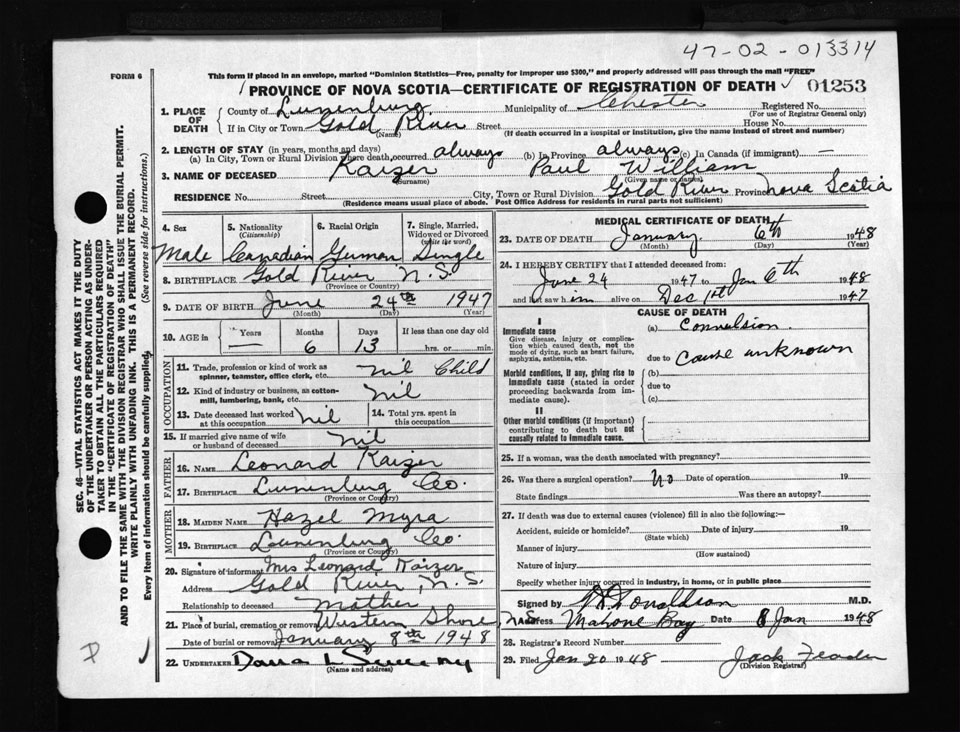 47-02-013314
FORM 6
This form if placed in an envelope, marked "Dominion Statistics—Free, penalty for improper use $300," and properly addressed will pass through the mail "FREE"
PROVINCE OF NOVA SCOTIA—CERTIFICATE OF REGISTRATION OF DEATH 01253
1. PLACE OF DEATH
County of Lunenburg Municipality of Chester Registered No.
(For use of Registrar General only)
If in City or Town Gold River Street House No.
(Name) (If death occurred in a hospital or institution, give the name instead of street and number)
2. LENGTH OF STAY (in years, months and days)
(a) In City, Town or Rural Division where death occurred always (b) In Province always (c) In Canada (if immigrant) —
3. NAME OF DECEASED Kaizer Paul William
(Surname) (Given name or names)
RESIDENCE No. Street City, Town or Rural Division Gold River Province Nova Scotia
(Residence means usual place of abode. Post Office Address for residents in rural parts not sufficient)
4. Sex 5. Nationality (Citizenship) 6. Racial Origin 7. Single, Married, Widowed or Divorced (write the word)
Male Canadian German Single
8. BIRTHPLACE Gold River N.S.
(Province or Country)
9. DATE OF BIRTH June 24th 1947
(Month) (Day) (Year)
10. AGE in Years Months Days If less than one day old
— 6 13 hrs. or min.
OCCUPATION
11. Trade, profession or kind of work as spinner, teamster, office clerk, etc. nil Child
12. Kind of industry or business, as cotton-mill, lumbering, bank, etc. nil
13. Date deceased last worked at this occupation nil 14. Total yrs. spent in this occupation
15. If married give name of wife or husband of deceased nil
FATHER
16. NAME Leonard Kaizer
17. BIRTHPLACE Lunenburg Co.
(Province or Country)
MOTHER
18. MAIDEN NAME Hazel Myra
19. BIRTHPLACE Lunenburg Co.
(Province or Country)
20. Signature of informant Mrs Leonard Kaizer
Address Gold River, N.S.
Relationship to deceased Mother
21. Place of burial, cremation or removal Western Shore, N.S.
Date of burial or removal January 8th 1948
22. UNDERTAKER Dana L Sweeny
(Name and address)
MEDICAL CERTIFICATE OF DEATH
23. DATE OF DEATH January 6th 1948
(Month) (Day) (Year)
24. I HEREBY CERTIFY that I attended deceased from:
June 24 1947 to Jan 6th 1948
and last saw him alive on Dec 1st 1947
CAUSE OF DEATH
I
Immediate cause
Give disease, injury or complication which caused death, not the mode of dying, such as heart failure, asphyxia, asthenia, etc.
(a) Convulsion.
due to cause unknown
Morbid conditions, if any, giving rise to immediate cause (stated in order proceeding backwards from immediate cause).
(b)
due to
(c)
II
Other morbid conditions (if important) contributing to death but not causally related to immediate cause.
25. If a woman, was the death associated with pregnancy?
26. Was there a surgical operation? No Date of operation 19
State findings Was there an autopsy?
27. If death was due to external causes (violence) fill in also the following:—
Accident, suicide or homicide? Date of injury 19
(State which)
Manner of injury
(How sustained)
Nature of injury
Specify whether injury occurred in industry, in home, or in public place
Signed by Donaldson M.D.
Address Mahone Bay Date 8 Jan 1948
28. Registrar's Record Number
29. Filed Jan 20 1948 Jack
(Division Registrar)
SEC. 46—VITAL STATISTICS ACT MAKES IT THE DUTY
OF THE UNDERTAKER OR PERSON ACTING AS UNDER-
TAKER TO OBTAIN ALL THE PARTICULARS REQUIRED
IN THE "CERTIFICATE OF REGISTRATION OF DEATH"
AND TO FILE THE SAME WITH THE DIVISION REGISTRAR WHO SHALL ISSUE THE BURIAL PERMIT.
WRITE PLAINLY WITH UNFADING INK. THIS IS A PERMANENT RECORD.
Every item of information should be carefully supplied. (See reverse side for instructions.)
P